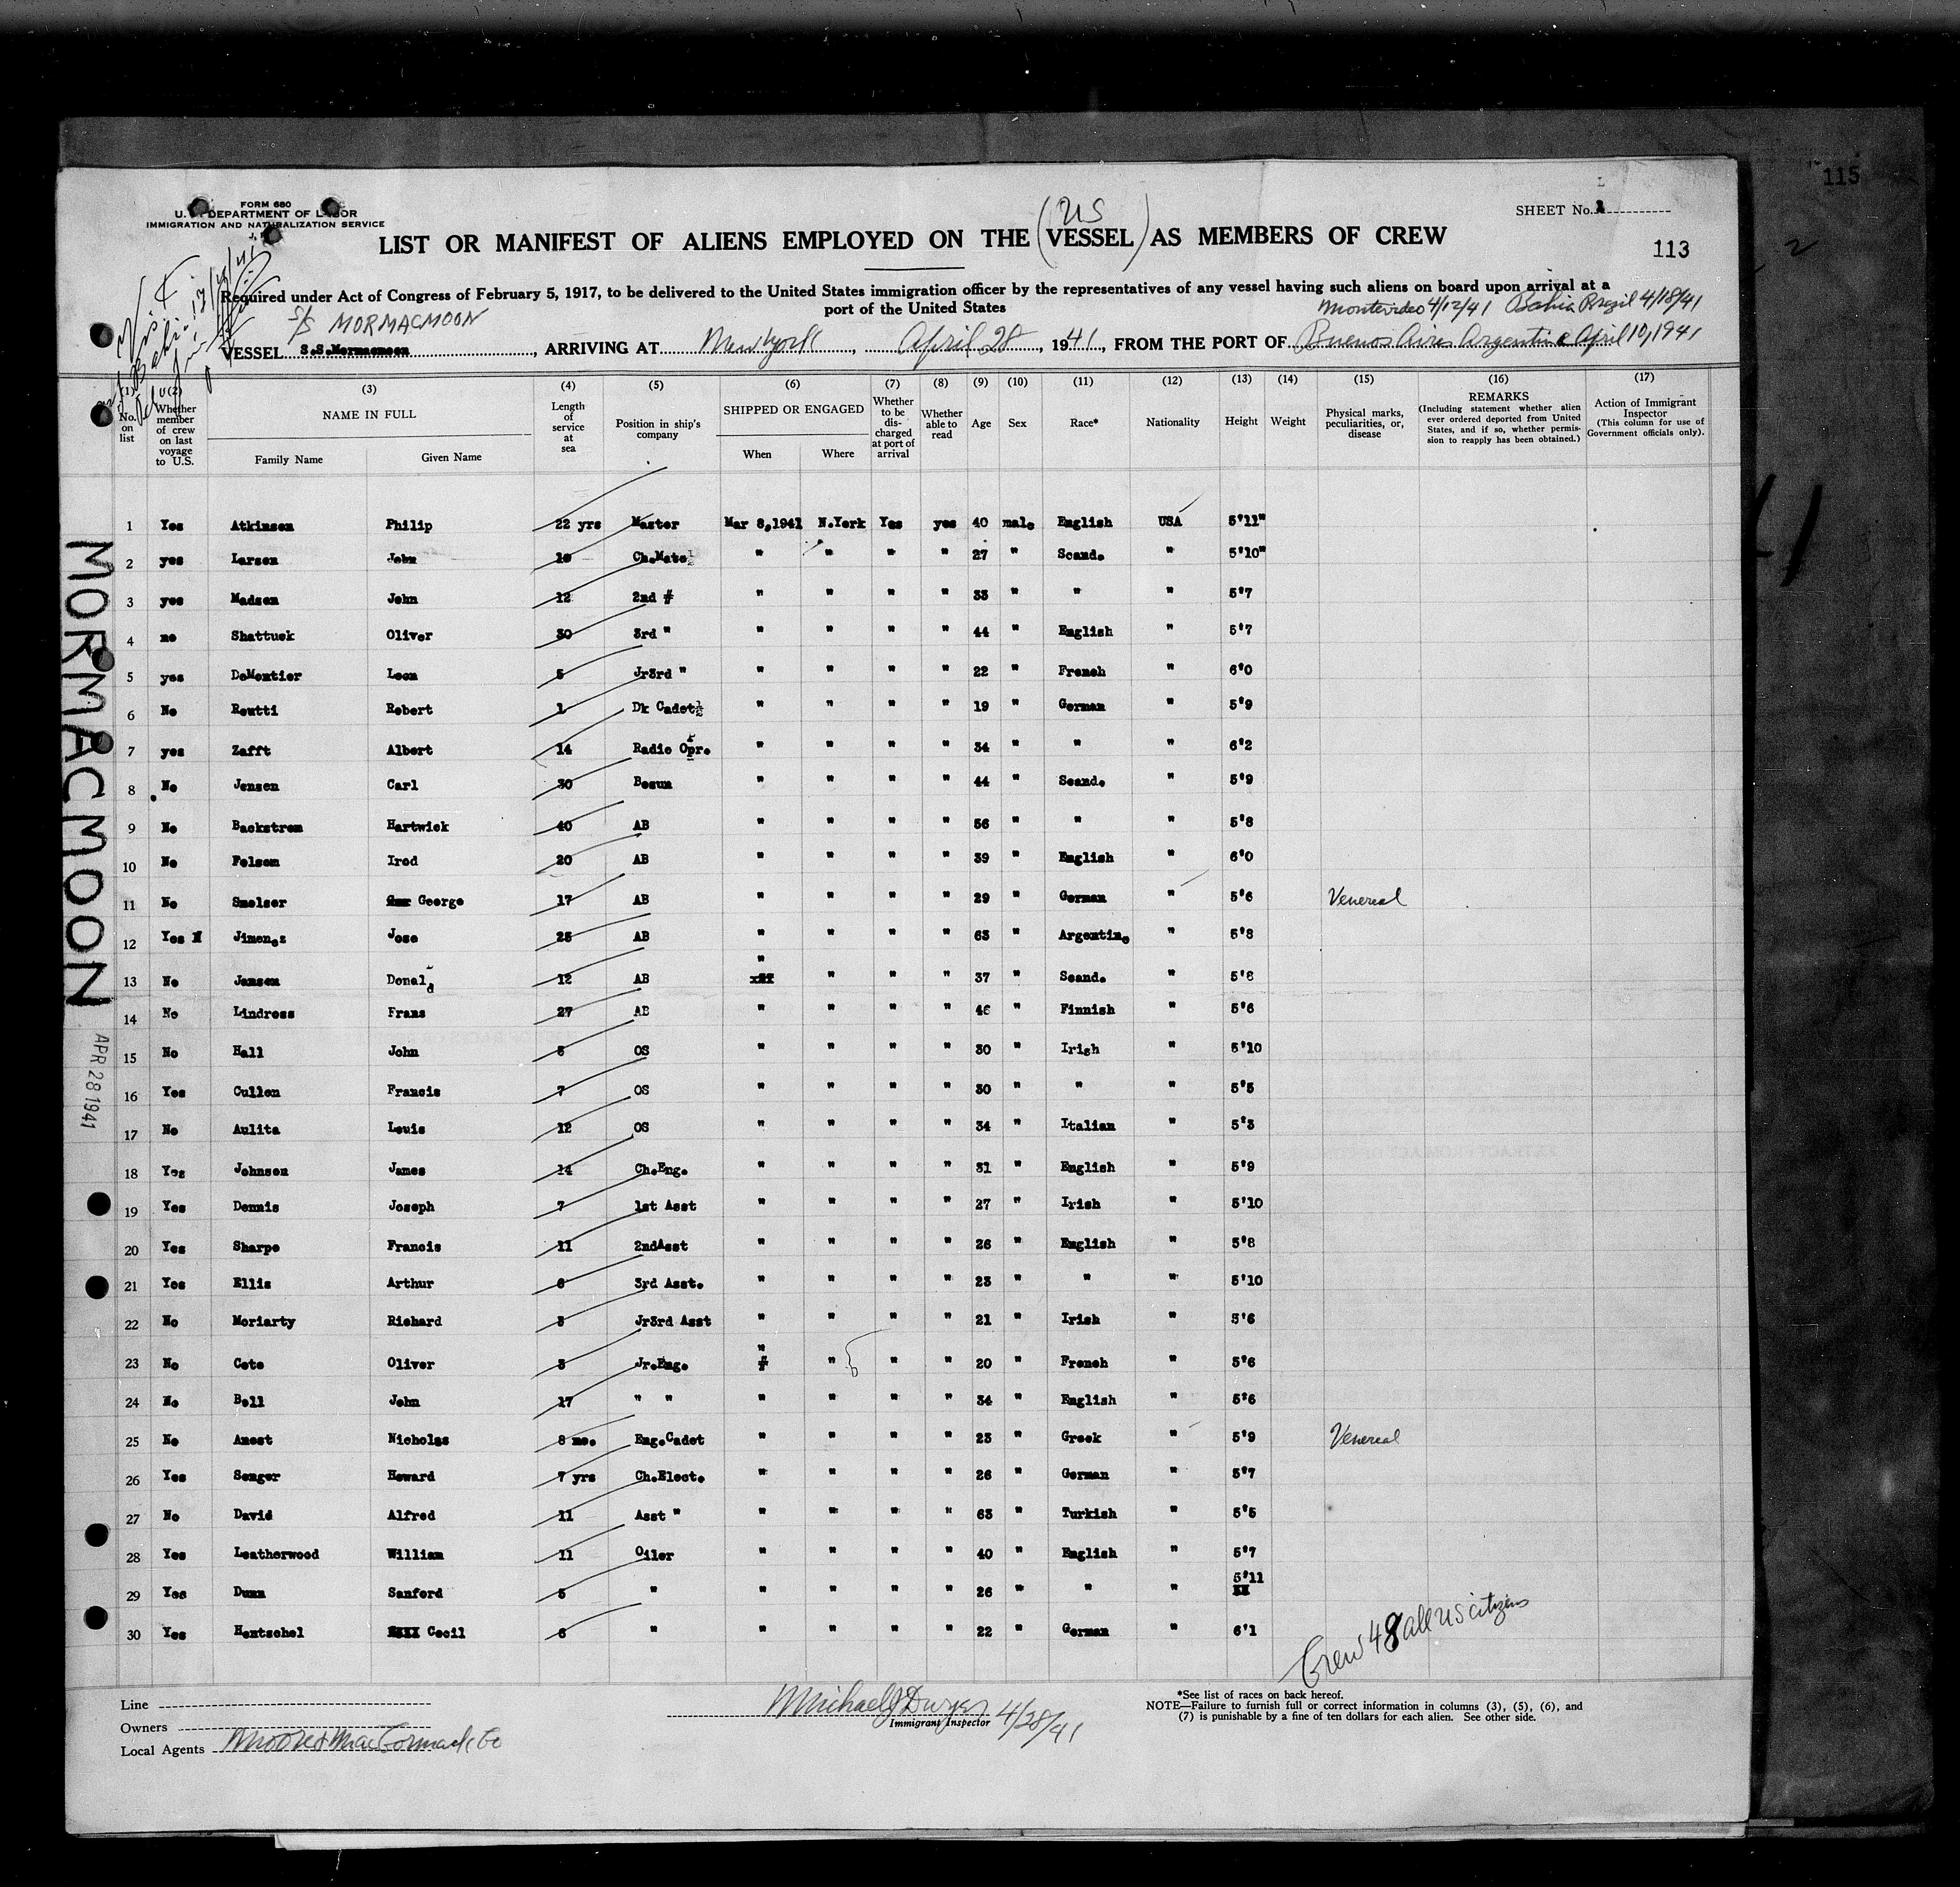 115
FORM 680
U. S. DEPARTMENT OF LABOR
IMMIGRATION AND NATURALIZATION SERVICE
SHEET No. 1
(US)
LIST OR MANIFEST OF ALIENS EMPLOYED ON THE VESSEL AS MEMBERS OF CREW
113
Required under Act of Congress of February 5, 1917, to be delivered to the United States immigration officer by the representatives of any vessel having such aliens on board upon arrival at a
port of the United States
Montevideo 4/12/41 Bahia Brazil 4/18/41
S/S MORMACMOON
VESSEL S.S.Mormacmoon, ARRIVING AT New York, April 28, 1941, FROM THE PORT OF Buenos Aires Argentine April 10, 1941
(1) No. on list
(2) Whether member of crew on last voyage to U.S.
(3) NAME IN FULL
Family Name Given Name
(4) Length of service at sea
(5) Position in ship's company
(6) SHIPPED OR ENGAGED
When Where
(7) Whether to be discharged at port of arrival
(8) Whether able to read
(9) Age
(10) Sex
(11) Race*
(12) Nationality
(13) Height
(14) Weight
(15) Physical marks, peculiarities, or, disease
(16) REMARKS (Including statement whether alien ever ordered deported from United States, and if so, whether permission to reapply has been obtained.)
(17) Action of Immigrant Inspector (This column for use of Government officials only).
1 Yes Atkinson Philip 22 yrs Master Mar 8,1941 N.York Yes yes 40 male English USA 5'11"
2 yes Larsen John 10 Ch.Mate " " " " 27 " Scand. " 5'10"
3 yes Madsen John 12 2nd # " " " " 33 " " " 5'7
4 no Shattuck Oliver 30 3rd " " " " " 44 " English " 5'7
5 yes DeMontier Leon 5 Jr3rd " " " " " 22 " French " 6'0
6 No Reutti Robert 1 Dk Cadet " " " " 19 " German " 5'9
7 yes Zafft Albert 14 Radio Opr. " " " " 34 " " " 6'2
8 No Jensen Carl 30 Bosun " " " " 44 " Scand. " 5'9
9 No Backstrom Hartwick 40 AB " " " " 56 " " " 5'8
10 No Folsom Irod 20 AB " " " " 39 " English " 6'0
11 No Smelser George 17 AB " " " " 29 " German " 5'6 Venereal
12 Yes Jimenez Jose 25 AB " " " " 63 " Argentine " 5'8
13 No Jansen Donald 12 AB " " " " 37 " Scand. " 5'8
14 No Lindross Frans 27 AB " " " " 46 " Finnish " 5'6
15 No Hall John 5 OS " " " " 30 " Irish " 5'10
16 Yes Cullen Francis 7 OS " " " " 30 " " " 5'5
17 No Aulita Louis 12 OS " " " " 34 " Italian " 5'3
18 Yes Johnson James 14 Ch.Eng. " " " " 31 " English " 5'9
19 Yes Dennis Joseph 7 1st Asst " " " " 27 " Irish " 5'10
20 Yes Sharpe Francis 11 2ndAsst " " " " 26 " English " 5'8
21 Yes Ellis Arthur 6 3rd Asst. " " " " 23 " " " 5'10
22 No Moriarty Richard 3 Jr3rd Asst " " " " 21 " Irish " 5'6
23 No Cote Oliver 3 Jr.Eng. " " " " 20 " French " 5'6
24 No Bell John 17 " " " " " " 34 " English " 5'6
25 No Anest Nicholas 8 mo. Eng.Cadet " " " " 23 " Greek " 5'9 Venereal
26 Yes Senger Howard 7 yrs Ch.Elect. " " " " 26 " German " 5'7
27 No David Alfred 11 Asst " " " " " 63 " Turkish " 5'5
28 Yes Leatherwood William 11 Oiler " " " " 40 " English " 5'7
29 Yes Dunn Sanford 5 " " " " " 26 " " " 5'11
30 Yes Hentschel Cecil 6 " " " " " 22 " German " 6'1
Crew 48 all US citizens
MORMACMOON
APR 28 1941
Line
Owners
Local Agents Moore & MacCormack Co
Michael J Dwyer 4/28/41
Immigrant Inspector
*See list of races on back hereof.
NOTE—Failure to furnish full or correct information in columns (3), (5), (6), and
(7) is punishable by a fine of ten dollars for each alien. See other side.